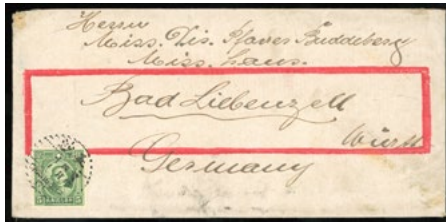 Herrn
Miss. Dis. Pfarrer Buddeberg
Miss. haus.
Bad Liebenzell
Württ
Germany